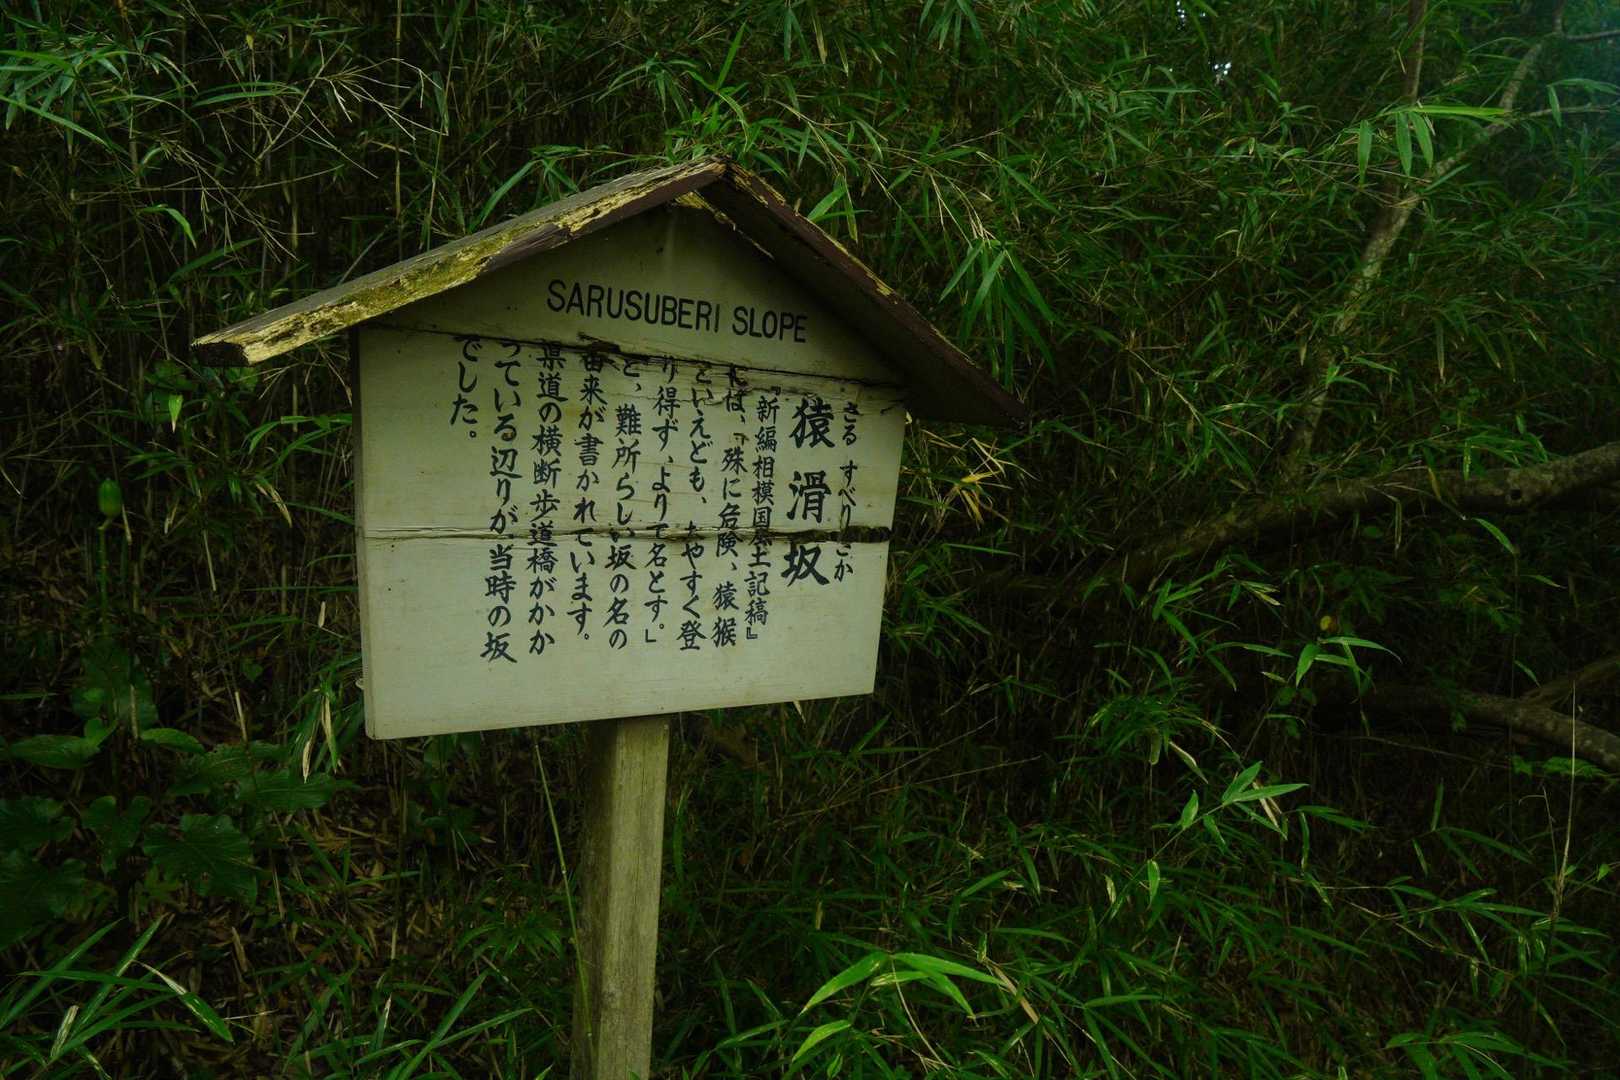 SARUSUBERI SLOPE
さる すべりざか
猿滑坂
『新編相模国風土記稿』
には、「殊に危険、猿猴
といえども、たやすく登
り得ず、よりて名とす。」
と、難所らしい坂の名の
由来が書かれています。
県道の横断歩道橋がかか
っている辺りが、当時の坂
でした。